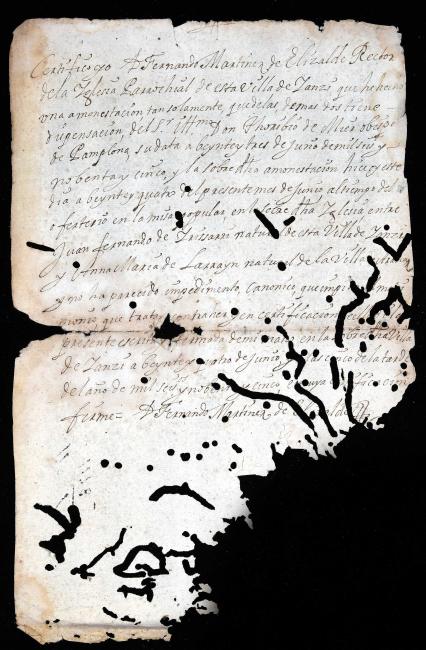 Certifico yo D Fernando Martinez de Elizalde Rector
de la Iglesia Parrochial de esta Villa de Yanzi que he hecho
una amonestacion tansolamente, que de las demas dos tiene
dispensacion del Sr Illmo Don Thoribio de Mier obispo
de Pamplona, su data a beynte y tres de Junio de mil seis y
nobenta y cinco, y la sobre dha amonestacion hice este
dia a beynte y quatro del presente mes de Junio al tiempo del
ofertorio en la misa popular en la sobre dha Iglesia entre
Juan Fernando de Irisarri natural de esta Villa de Yanzi
y Anna Maria de Larrayn natural de la Villa
y no ha parecido impedimento Canonico que impida
monio que tratan contraer, en certificacion
presente escrita y firmada de mi mano en la sobre dha Villa
de Yanzi a beynte y quatro de Junio, a las cinco de la tarde
del año de mil seis y nobenta y cinco, en cuya certificacion
firme = D Fernando Martinez de Elizalde